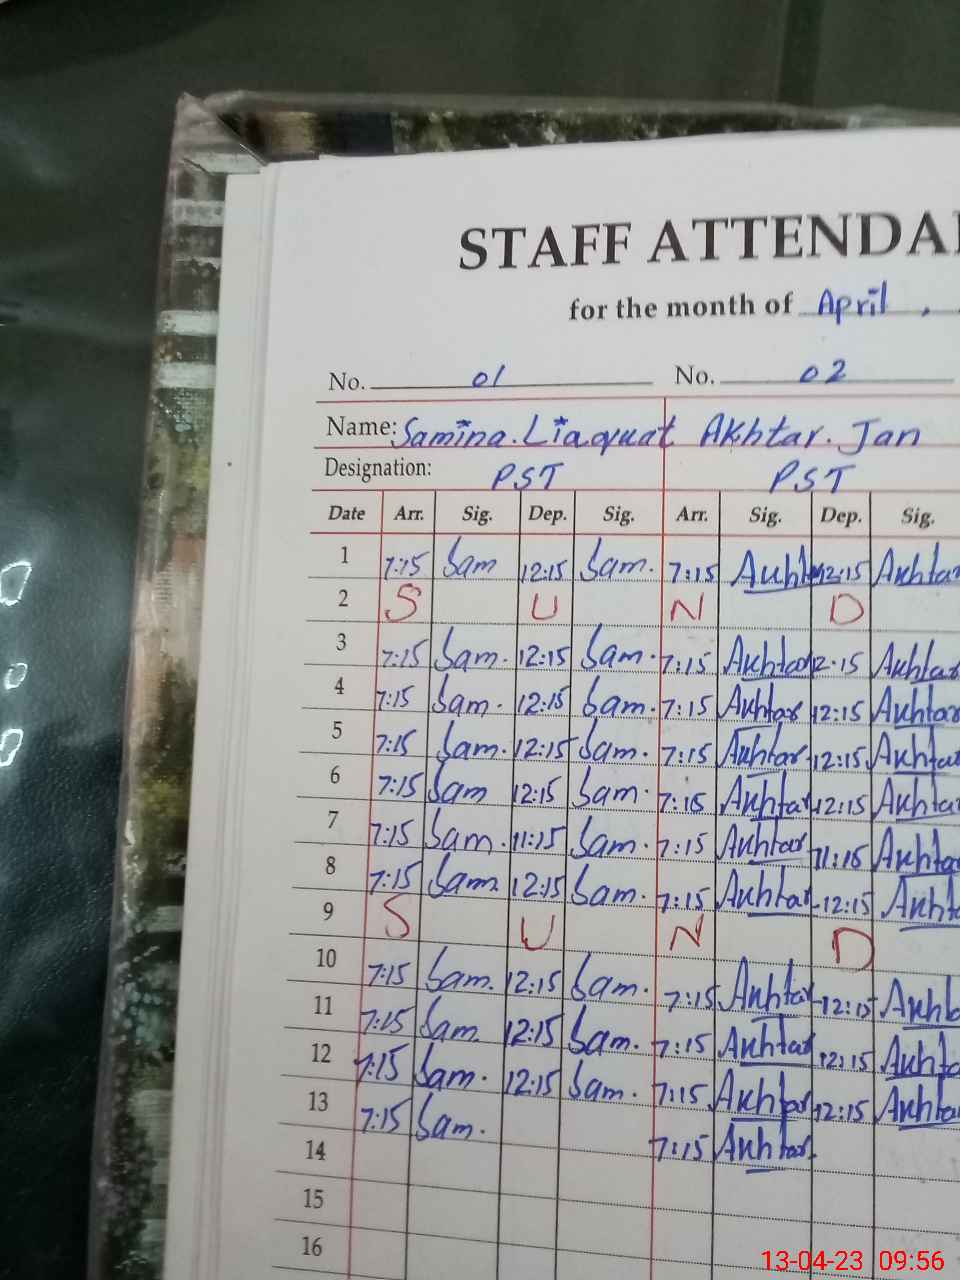 STAFF ATTENDA
for the month of April,
No. 01 No. 02
Name: Samina. Liaquat Akhtar. Jan
Designation: PST PST
Date Arr. Sig. Dep. Sig. Arr. Sig. Dep. Sig.
1 7:15 Sam 12:15 Sam. 7:15 Akht 12:15 Akhtar
2 S U N D
3 7:15 Sam. 12:15 Sam. 7:15 Akhtar 12:15 Akhtar
4 7:15 Sam. 12:15 Sam. 7:15 Akhtar 12:15 Akhtar
5 7:15 Sam. 12:15 Sam. 7:15 Akhtar 12:15 Akhta
6 7:15 Sam 12:15 Sam. 7:15 Akhtar 12:15 Akhta
7 7:15 Sam. 11:15 Sam. 7:15 Akhtar 11:15 Akhta
8 7:15 Sam. 12:15 Sam. 7:15 Akhtar 12:15 Akht
9 S U N D
10 7:15 Sam. 12:15 Sam. 7:15 Akhtar 12:15 Akht
11 7:15 Sam. 12:15 Sam. 7:15 Akhtar 12:15 Akhta
12 7:15 Sam. 12:15 Sam. 7:15 Akhtar 12:15 Akhta
13 7:15 Sam. 7:15 Akhtar.
14
15
16
13-04-23 09:56